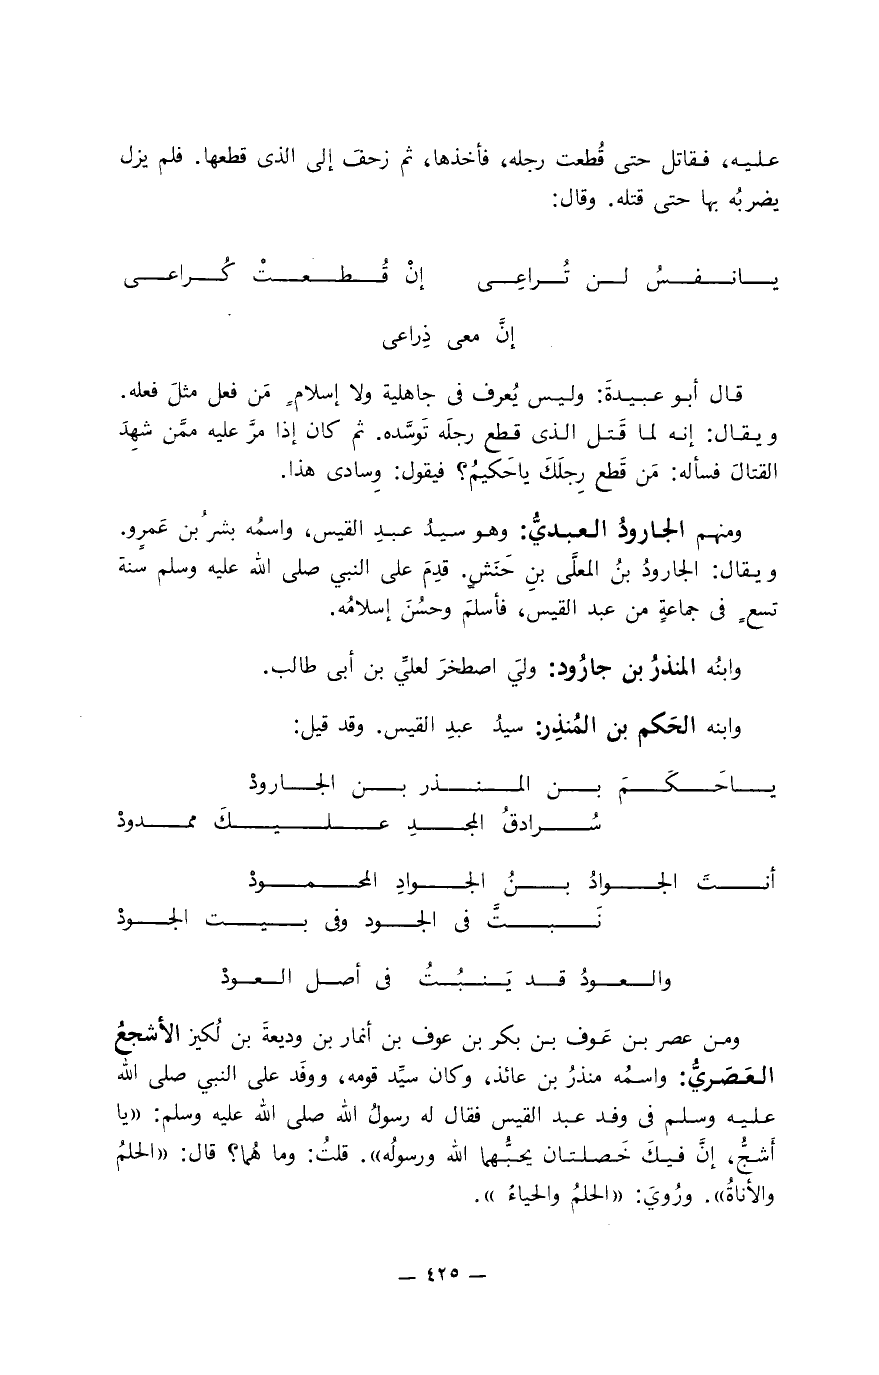 عليه، فقاتل حتى قُطعت رجله، فأخذها، ثم زحفَ إلى الذى قطعها. فلم يزل
يضربُه بها حتى قتله. وقال:
يانفسُ لن تُراعِى إنْ قُطعتْ كُراعى
إنَّ معى ذِراعى
قال أبو عبيدةَ: وليس يُعرف فى جاهلية ولا إسلامٍ مَن فعل مثلَ فعله.
ويقال: إنه لما قَتل الذى قطع رجلَه تَوسَّده. ثم كان إذا مرَّ عليه ممَّن شهِدَ
القتالَ فسأله: مَن قَطع رِجلَكَ ياحَكيمُ؟ فيقول: وِسادى هذا.
ومنهم الجارودُ العبديُّ: وهو سيدُ عبدِ القيس، واسمُه بشرُ بن عَمرٍو.
ويقال: الجارودُ بنُ المعلَّى بنِ حَنَشٍ. قدِمَ على النبي صلى الله عليه وسلم سنة
تسعٍ فى جماعةٍ من عبد القيس، فأسلمَ وحسُنَ إسلامُه.
وابنُه المنذرُ بن جارُود: وليَ اصطخرَ لعليِّ بن أبى طالب.
وابنه الحَكم بن المُنذِر: سيدُ عبدِ القيس. وقد قيل:
ياحَكَمَ بن المنذر بن الجارودْ
سُرادقُ المجدِ عليكَ ممدودْ
أنتَ الجوادُ بنُ الجوادِ المحمودْ
نَبتَّ فى الجود وفى بيت الجودْ
والعودُ قد يَنبُتُ فى أصل العودْ
ومن عصر بن عَوف بن بكر بن عوف بن أنمار بن وديعةَ بن لُكيز الأشجعُ
العَصَريُّ: واسمُه منذرُ بن عائذ، وكان سيِّد قومه، ووفَد على النبي صلى الله
عليه وسلم فى وفد عبد القيس فقال له رسولُ الله صلى الله عليه وسلم: «يا
أشجُّ، إنَّ فيكَ خَصلتان يحبُّهما الله ورسولُه». قلتُ: وما هُما؟ قال: «الحلمُ
والأناةُ». ورُويَ: «الحلمُ والحياءُ».
— ٤٢٥ —